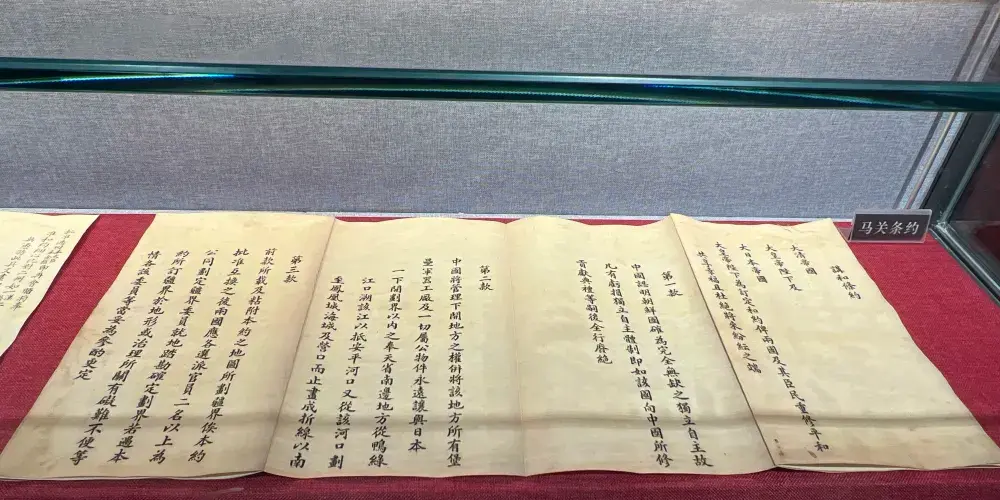 马关条约
講和條約
大清帝國
大皇帝陛下及
大日本帝國
大皇帝陛下為訂定和約俾兩國及其臣民重修平和
共享幸福且杜絕將來紛紜之端
第一款
中國認明朝鮮國確為完全無缺之獨立自主故
凡有虧損獨立自主體制即如該國向中國所修
貢獻典禮等嗣後全行廢絕
第二款
中國將管理下開地方之權併將該地方所有堡
壘軍器工廠及一切屬公物件永遠讓與日本
一下開劃界以內之奉天省南邊地方從鴨綠
江口溯該江以抵安平河口又從該河口劃
至鳳凰城海城及營口而止畫成折線以南
第三款
前款所載及粘附本約之地圖所劃疆界俟本約
批准互換之後兩國應各選派官員二名以上為
公同劃定疆界委員就地踏勘確定劃界若遇本
約所訂疆界於地形或治理所關有礙難不便等
情各該委員等當妥為參酌更定